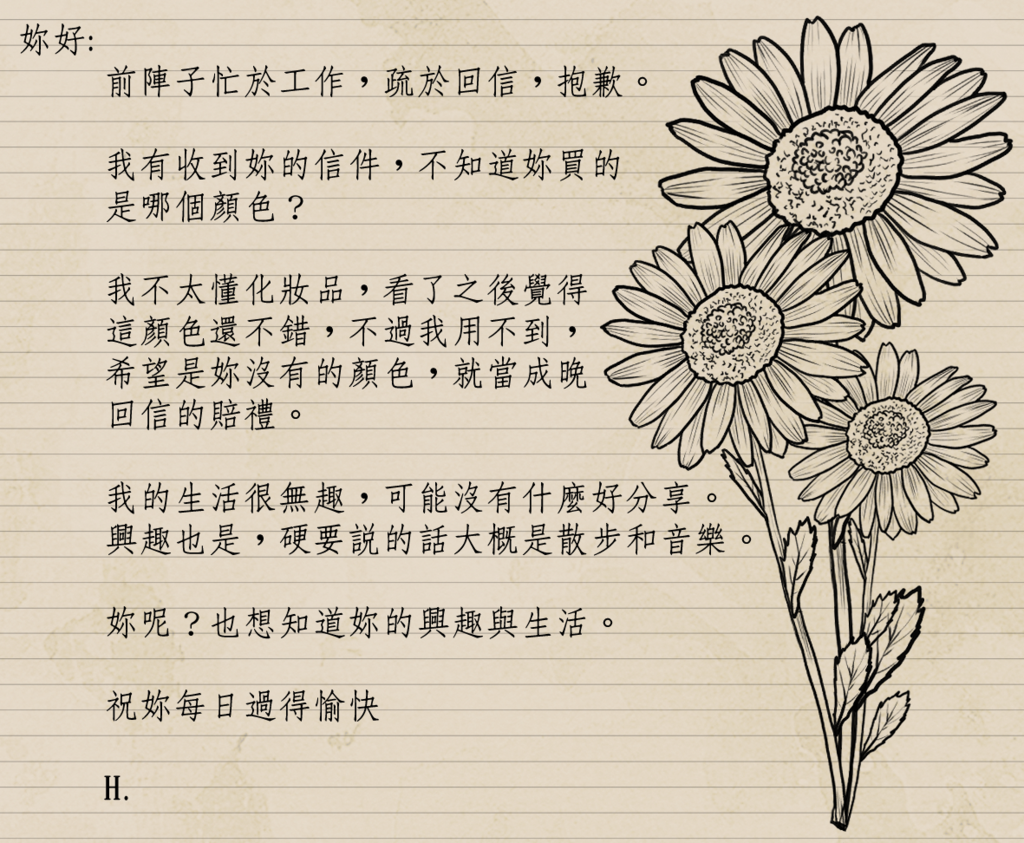 妳好:
前陣子忙於工作，疏於回信，抱歉。
我有收到妳的信件，不知道妳買的
是哪個顏色？
我不太懂化妝品，看了之後覺得
這顏色還不錯，不過我用不到，
希望是妳沒有的顏色，就當成晚
回信的賠禮。
我的生活很無趣，可能沒有什麼好分享。
興趣也是，硬要說的話大概是散步和音樂。
妳呢？也想知道妳的興趣與生活。
祝妳每日過得愉快
H.